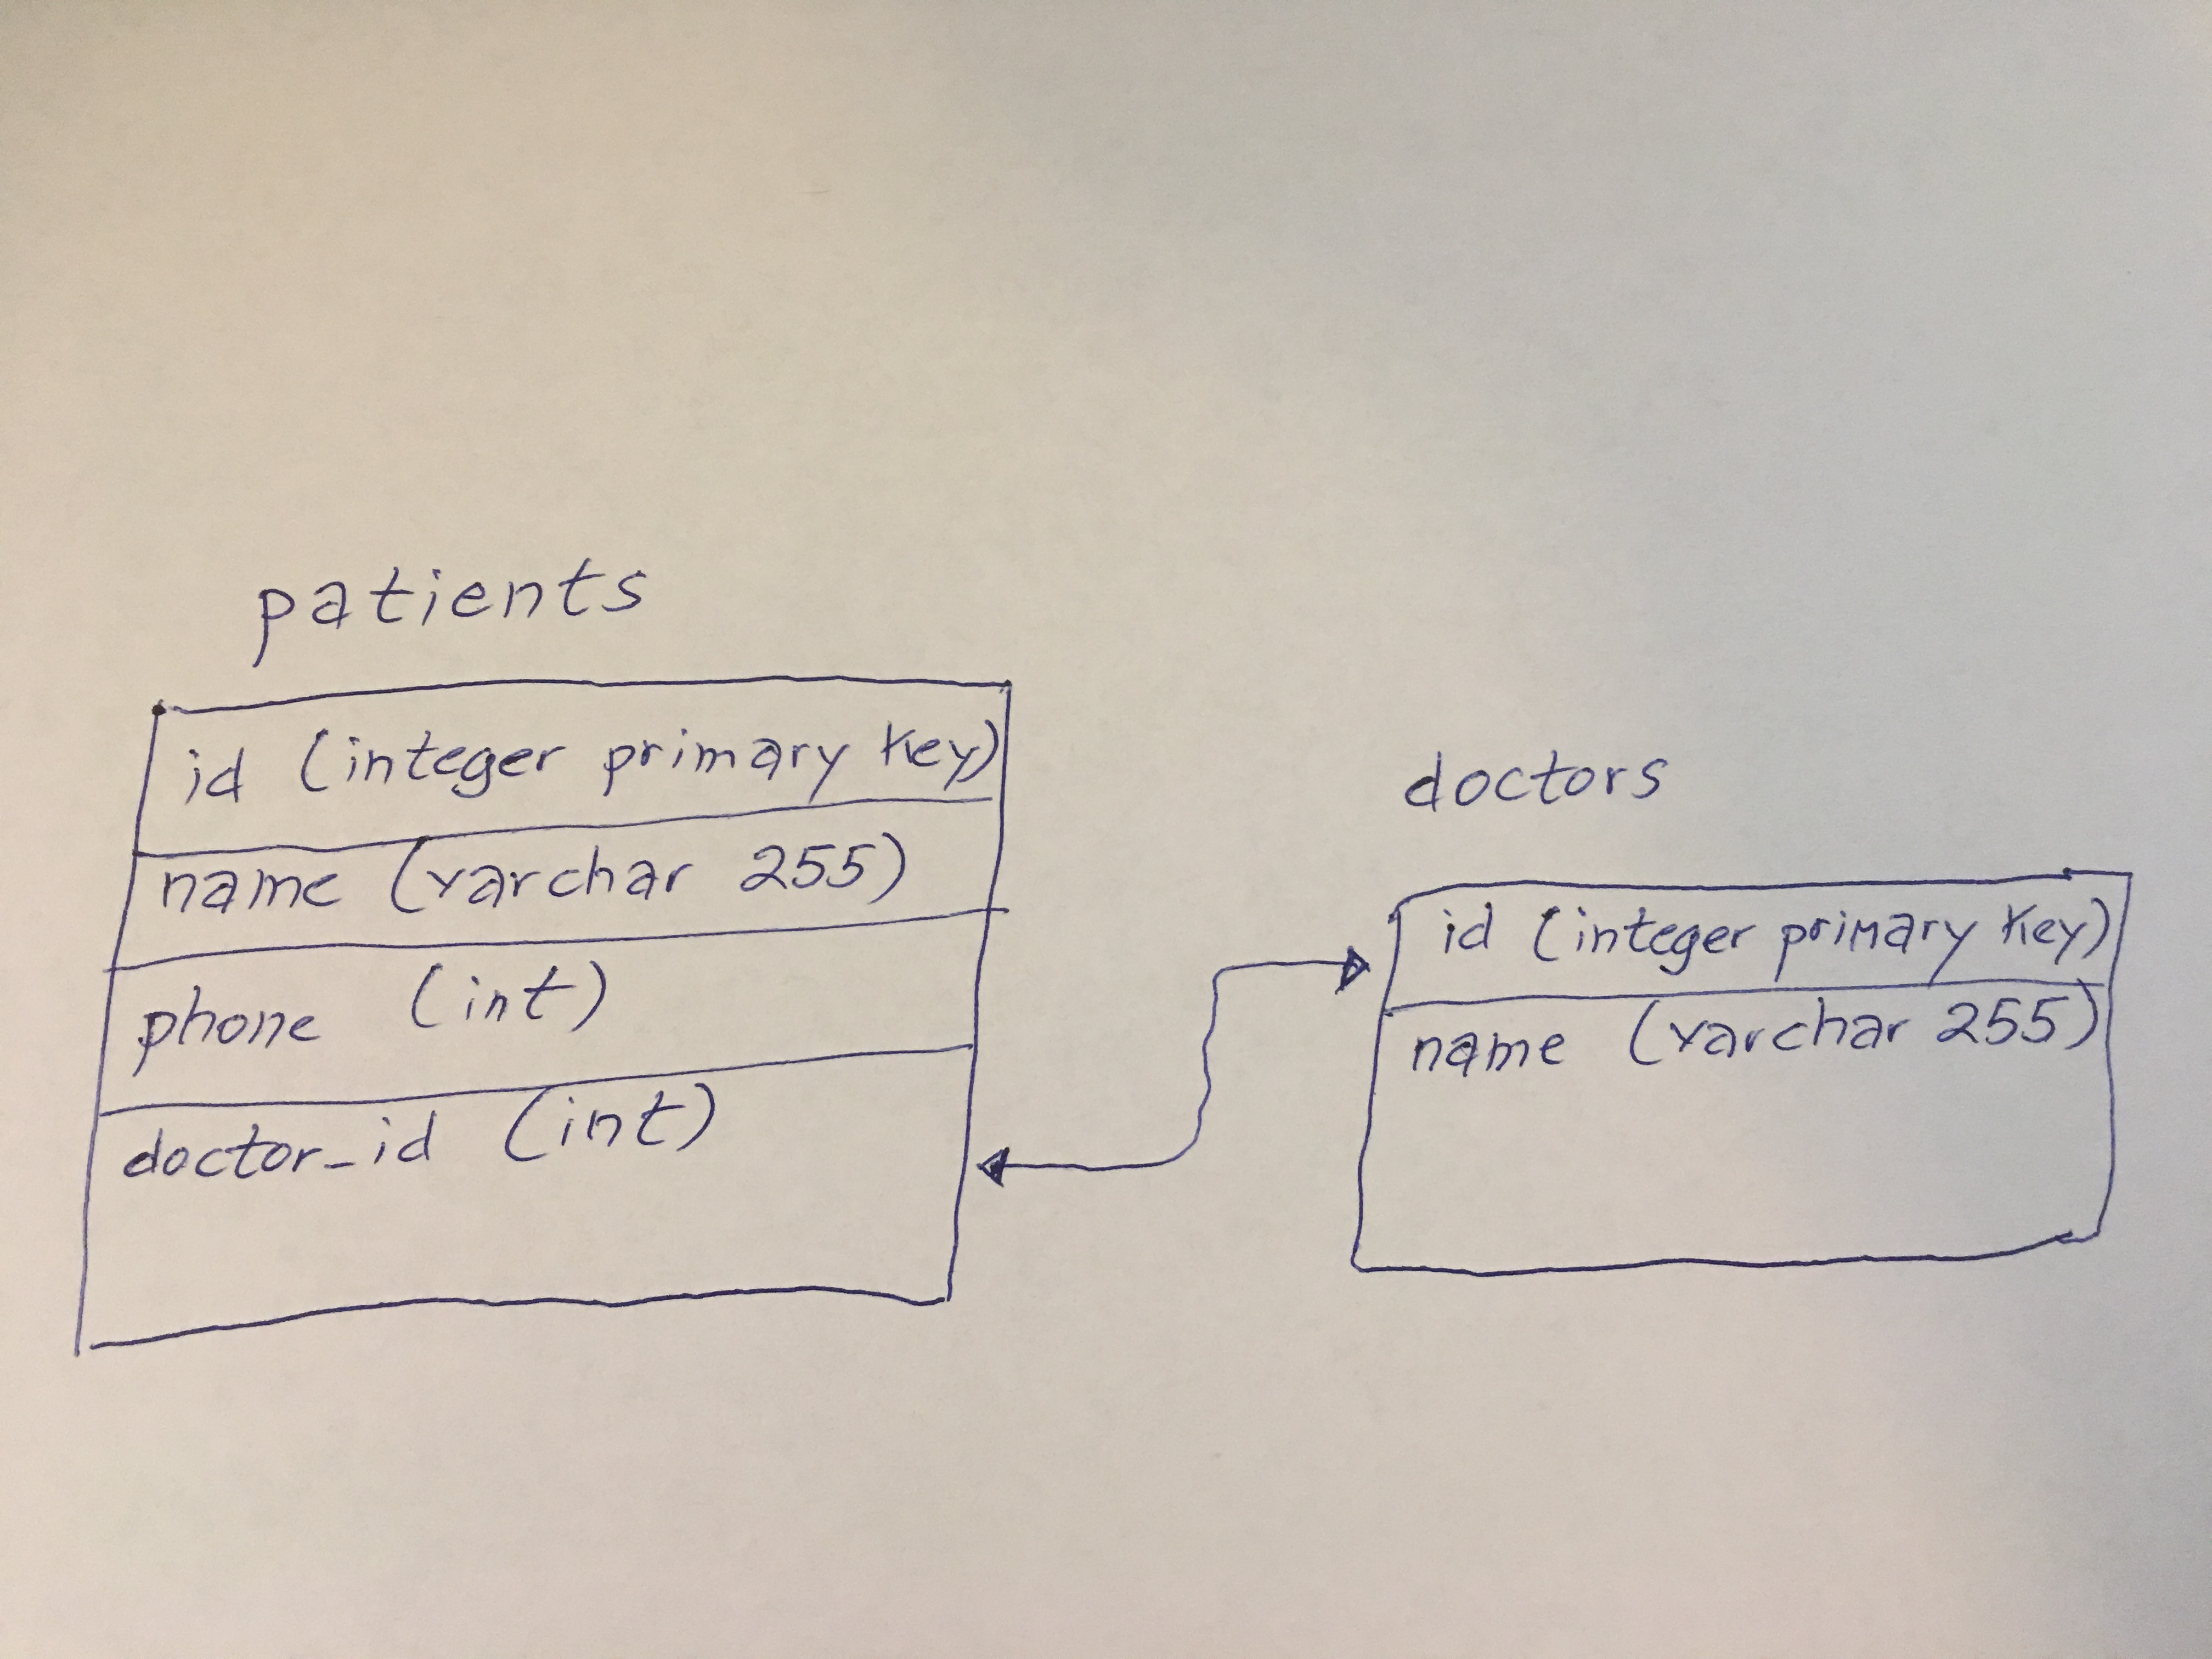 patients
id (integer primary key)
name (varchar 255)
phone (int)
doctor_id (int)
doctors
id (integer primary key)
name (varchar 255)